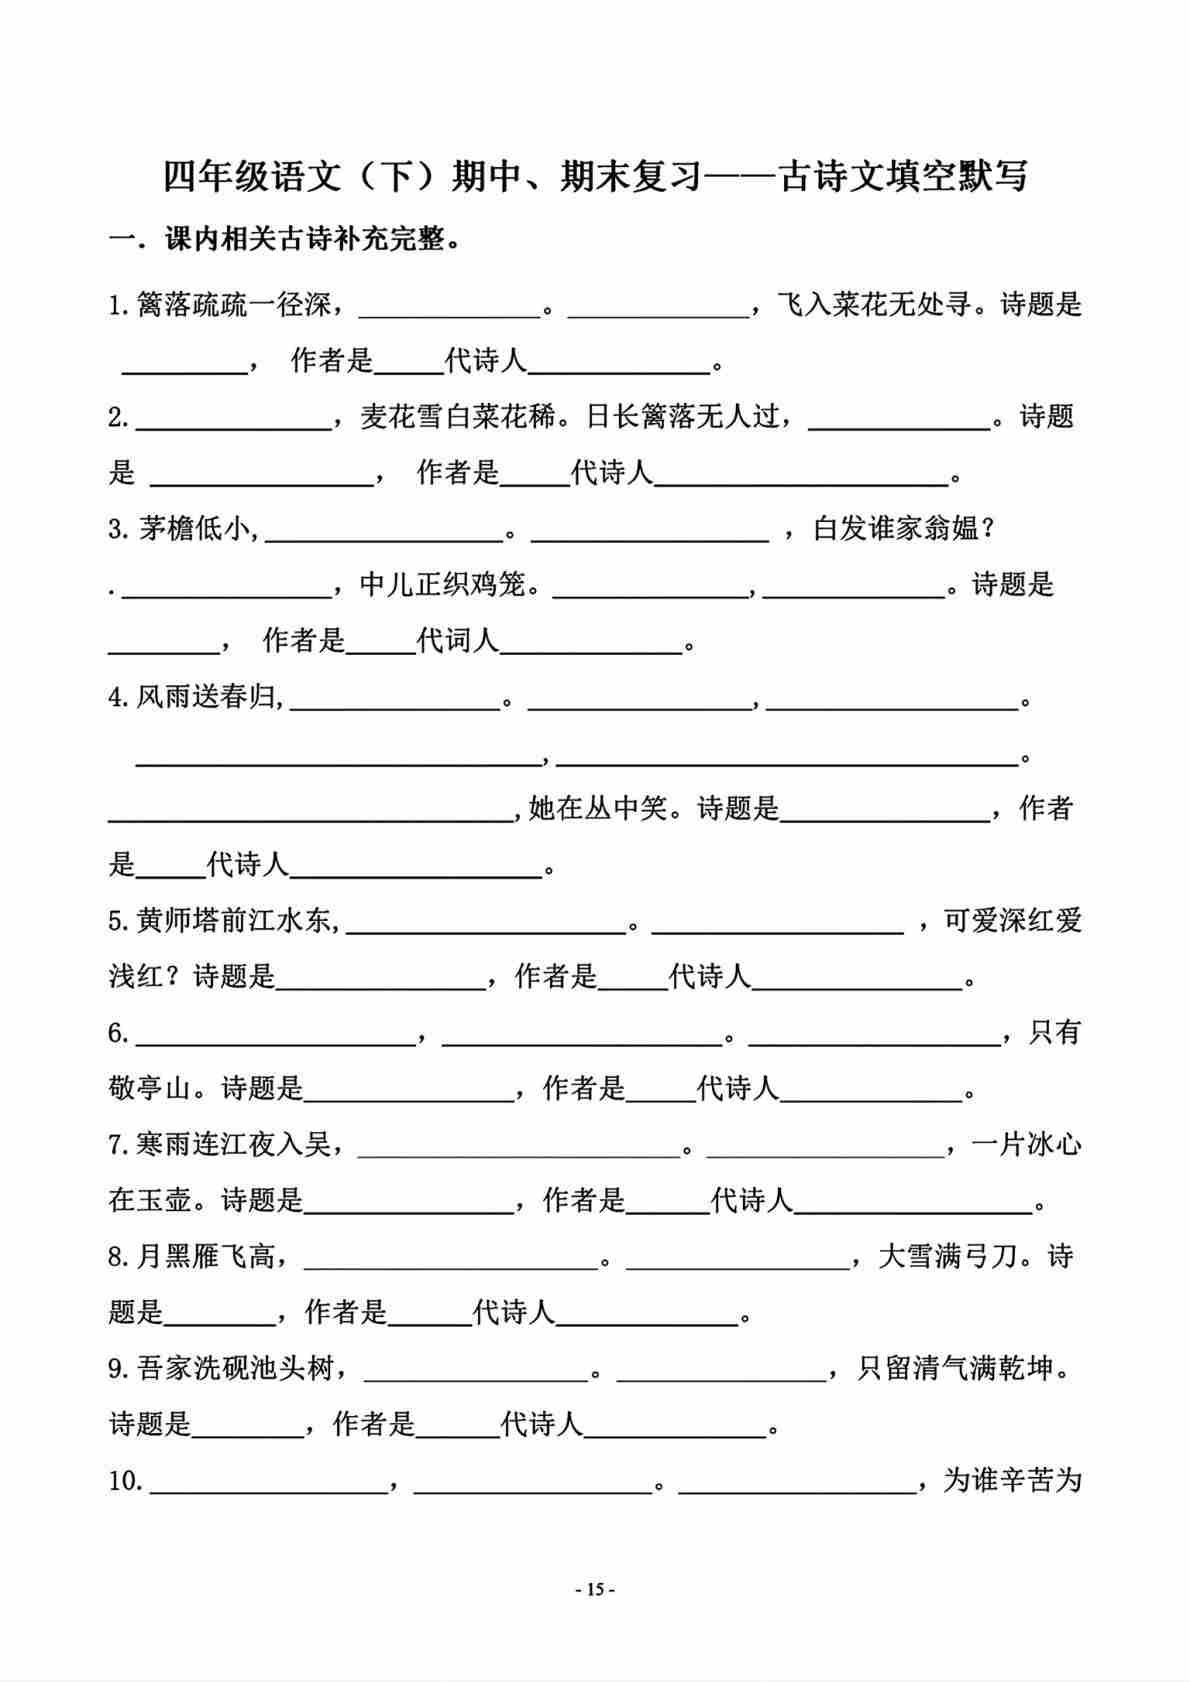 四年级语文（下）期中、期末复习——古诗文填空默写
一．课内相关古诗补充完整。
1.篱落疏疏一径深，_____________。_____________，飞入菜花无处寻。诗题是
_________， 作者是_____代诗人_____________。
2.______________，麦花雪白菜花稀。日长篱落无人过，_____________。诗题
是 ________________， 作者是_____代诗人_____________________。
3.茅檐低小,_________________。_________________ ，白发谁家翁媪？
._______________，中儿正织鸡笼。______________,_____________。诗题是
________， 作者是_____代词人_____________。
4.风雨送春归,_______________。________________,__________________。
_____________________________,_________________________________。
_____________________________,她在丛中笑。诗题是_______________，作者
是_____代诗人__________________。
5.黄师塔前江水东,____________________。__________________ ，可爱深红爱
浅红？诗题是_______________，作者是_____代诗人_______________。
6.____________________，____________________。__________________，只有
敬亭山。诗题是_______________，作者是_____代诗人_____________。
7.寒雨连江夜入吴，_______________________。_________________，一片冰心
在玉壶。诗题是_______________，作者是______代诗人_________________。
8.月黑雁飞高，_____________________。________________，大雪满弓刀。诗
题是________，作者是______代诗人_____________。
9.吾家洗砚池头树，________________。_______________，只留清气满乾坤。
诗题是________，作者是______代诗人_____________。
10._________________，_________________。_________________，为谁辛苦为
- 15 -